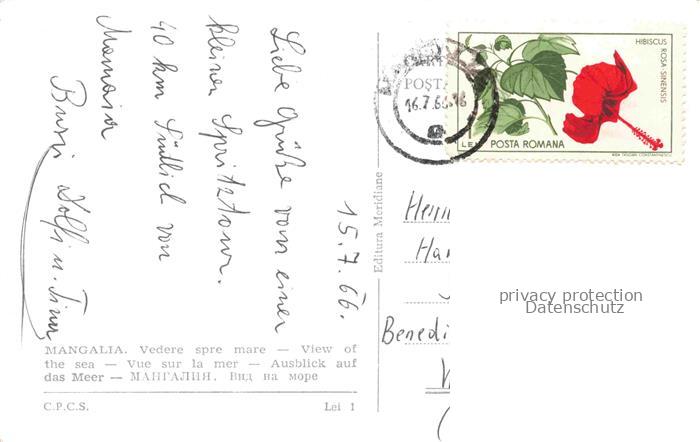 15.7.66.
Liebe Grüße von einer
kleinen Spritztour.
40 km Südlich von
Mamaia
Bussi Dolfi u.
MANGALIA. Vedere spre mare — View of
the sea — Vue sur la mer — Ausblick auf
das Meer — МАНГАЛИЯ. Вид на море
C.P.C.S. Lei 1
Editura Meridiane
POȘTA
16.7.66.
HIBISCUS
ROSA SINENSIS
1 LEU POSTA ROMANA
Herrn
Han
Benedi
privacy protection
Datenschutz